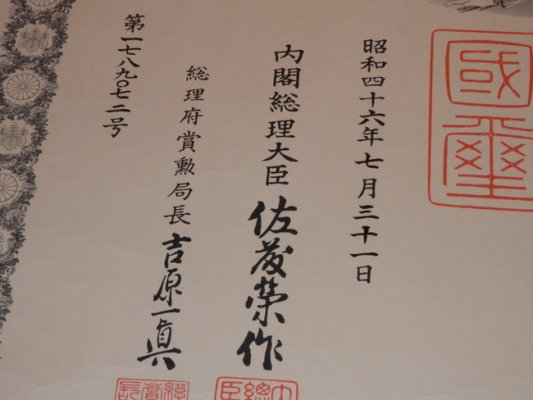 國璽
昭和四十六年七月三十一日
内閣総理大臣 佐藤榮作
総理府賞勲局長 吉原一眞
第一七八九〇七二号